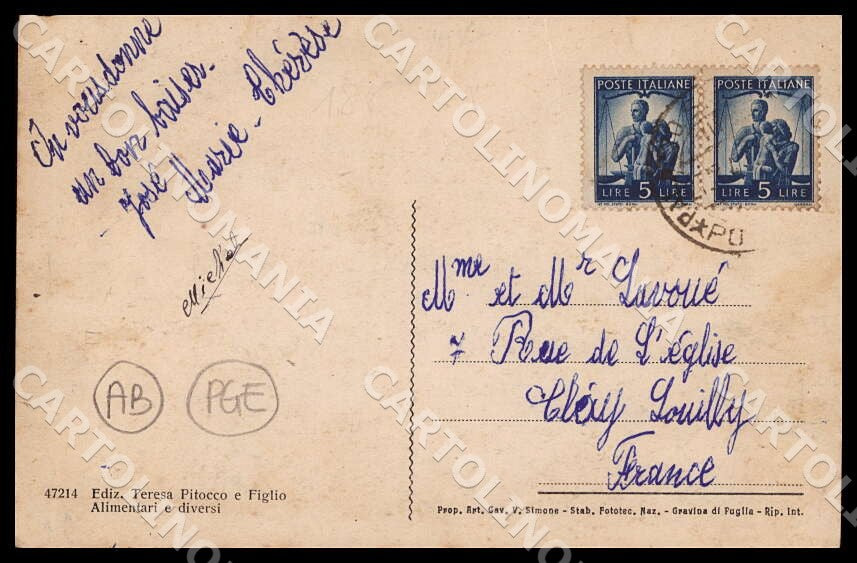 On vous donne
un bon baiser.
José Marie-Thérèse
Michel
AB
PGE
47214 Ediz. Teresa Pitocco e Figlio
Alimentari e diversi
POSTE ITALIANE
LIRE 5 LIRE
POSTE ITALIANE
LIRE 5 LIRE
Mme et Mr Lavoué
7 Rue de L'église
Cléry Souilly
France
Prop. Art. Cav. V. Simone - Stab. Fototec. Naz. - Gravina di Puglia - Rip. Int.
CARTOLINOMANIA